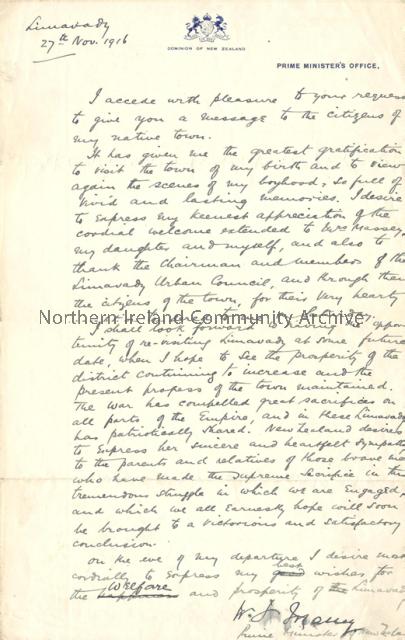 Limavady
27th Nov. 1916
DOMINION OF NEW ZEALAND
PRIME MINISTER'S OFFICE.
I accede with pleasure to your request
to give you a message to the citizens of
my native town.
It has given me the greatest gratification
to visit the town of my birth and to view
again the scenes of my boyhood, so full of
vivid and lasting memories. I desire
to express my keenest appreciation of the
cordial welcome extended to Mrs Massey,
my daughter and myself, and also to
thank the Chairman and members of the
Limavady Urban Council, and through them
the citizens of the town, for their very hearty
Northern Ireland Community Archive
I shall look forward to having the oppor
tunity of re-visiting Limavady at some future
date, when I hope to see the prosperity of the
district continuing to increase and the
present progress of the town maintained.
The war has compelled great sacrifices on
all parts of the Empire, and in these Limavady
has patriotically shared. New Zealand desires
to express her sincere and heartfelt sympathy
to the parents and relatives of those brave men
who have made the supreme sacrifice in the
tremendous struggle in which we are engaged,
and which we all earnestly hope will soon
be brought to a victorious and satisfactory
conclusion.
On the eve of my departure I desire most
cordially to express my good best wishes for
the happiness Welfare and prosperity of the Limavady
W. F. Massey
Prime Minister of New Zealand